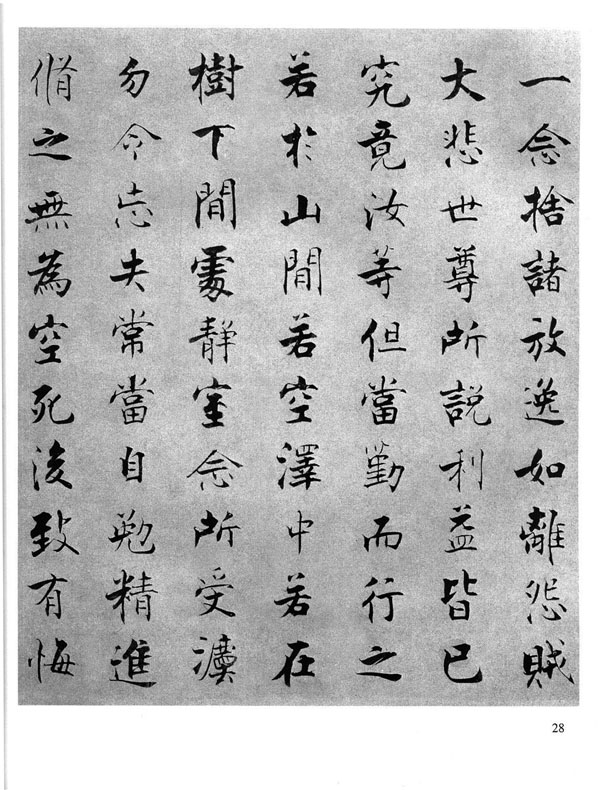 一念捨諸放逸如離怨賊
大悲世尊所説利益皆已
究竟汝等但當勤而行之
若於山間若空澤中若在
樹下閒處静室念所受灋
勿令忘失常當自勉精進
脩之無為空死後致有悔
28